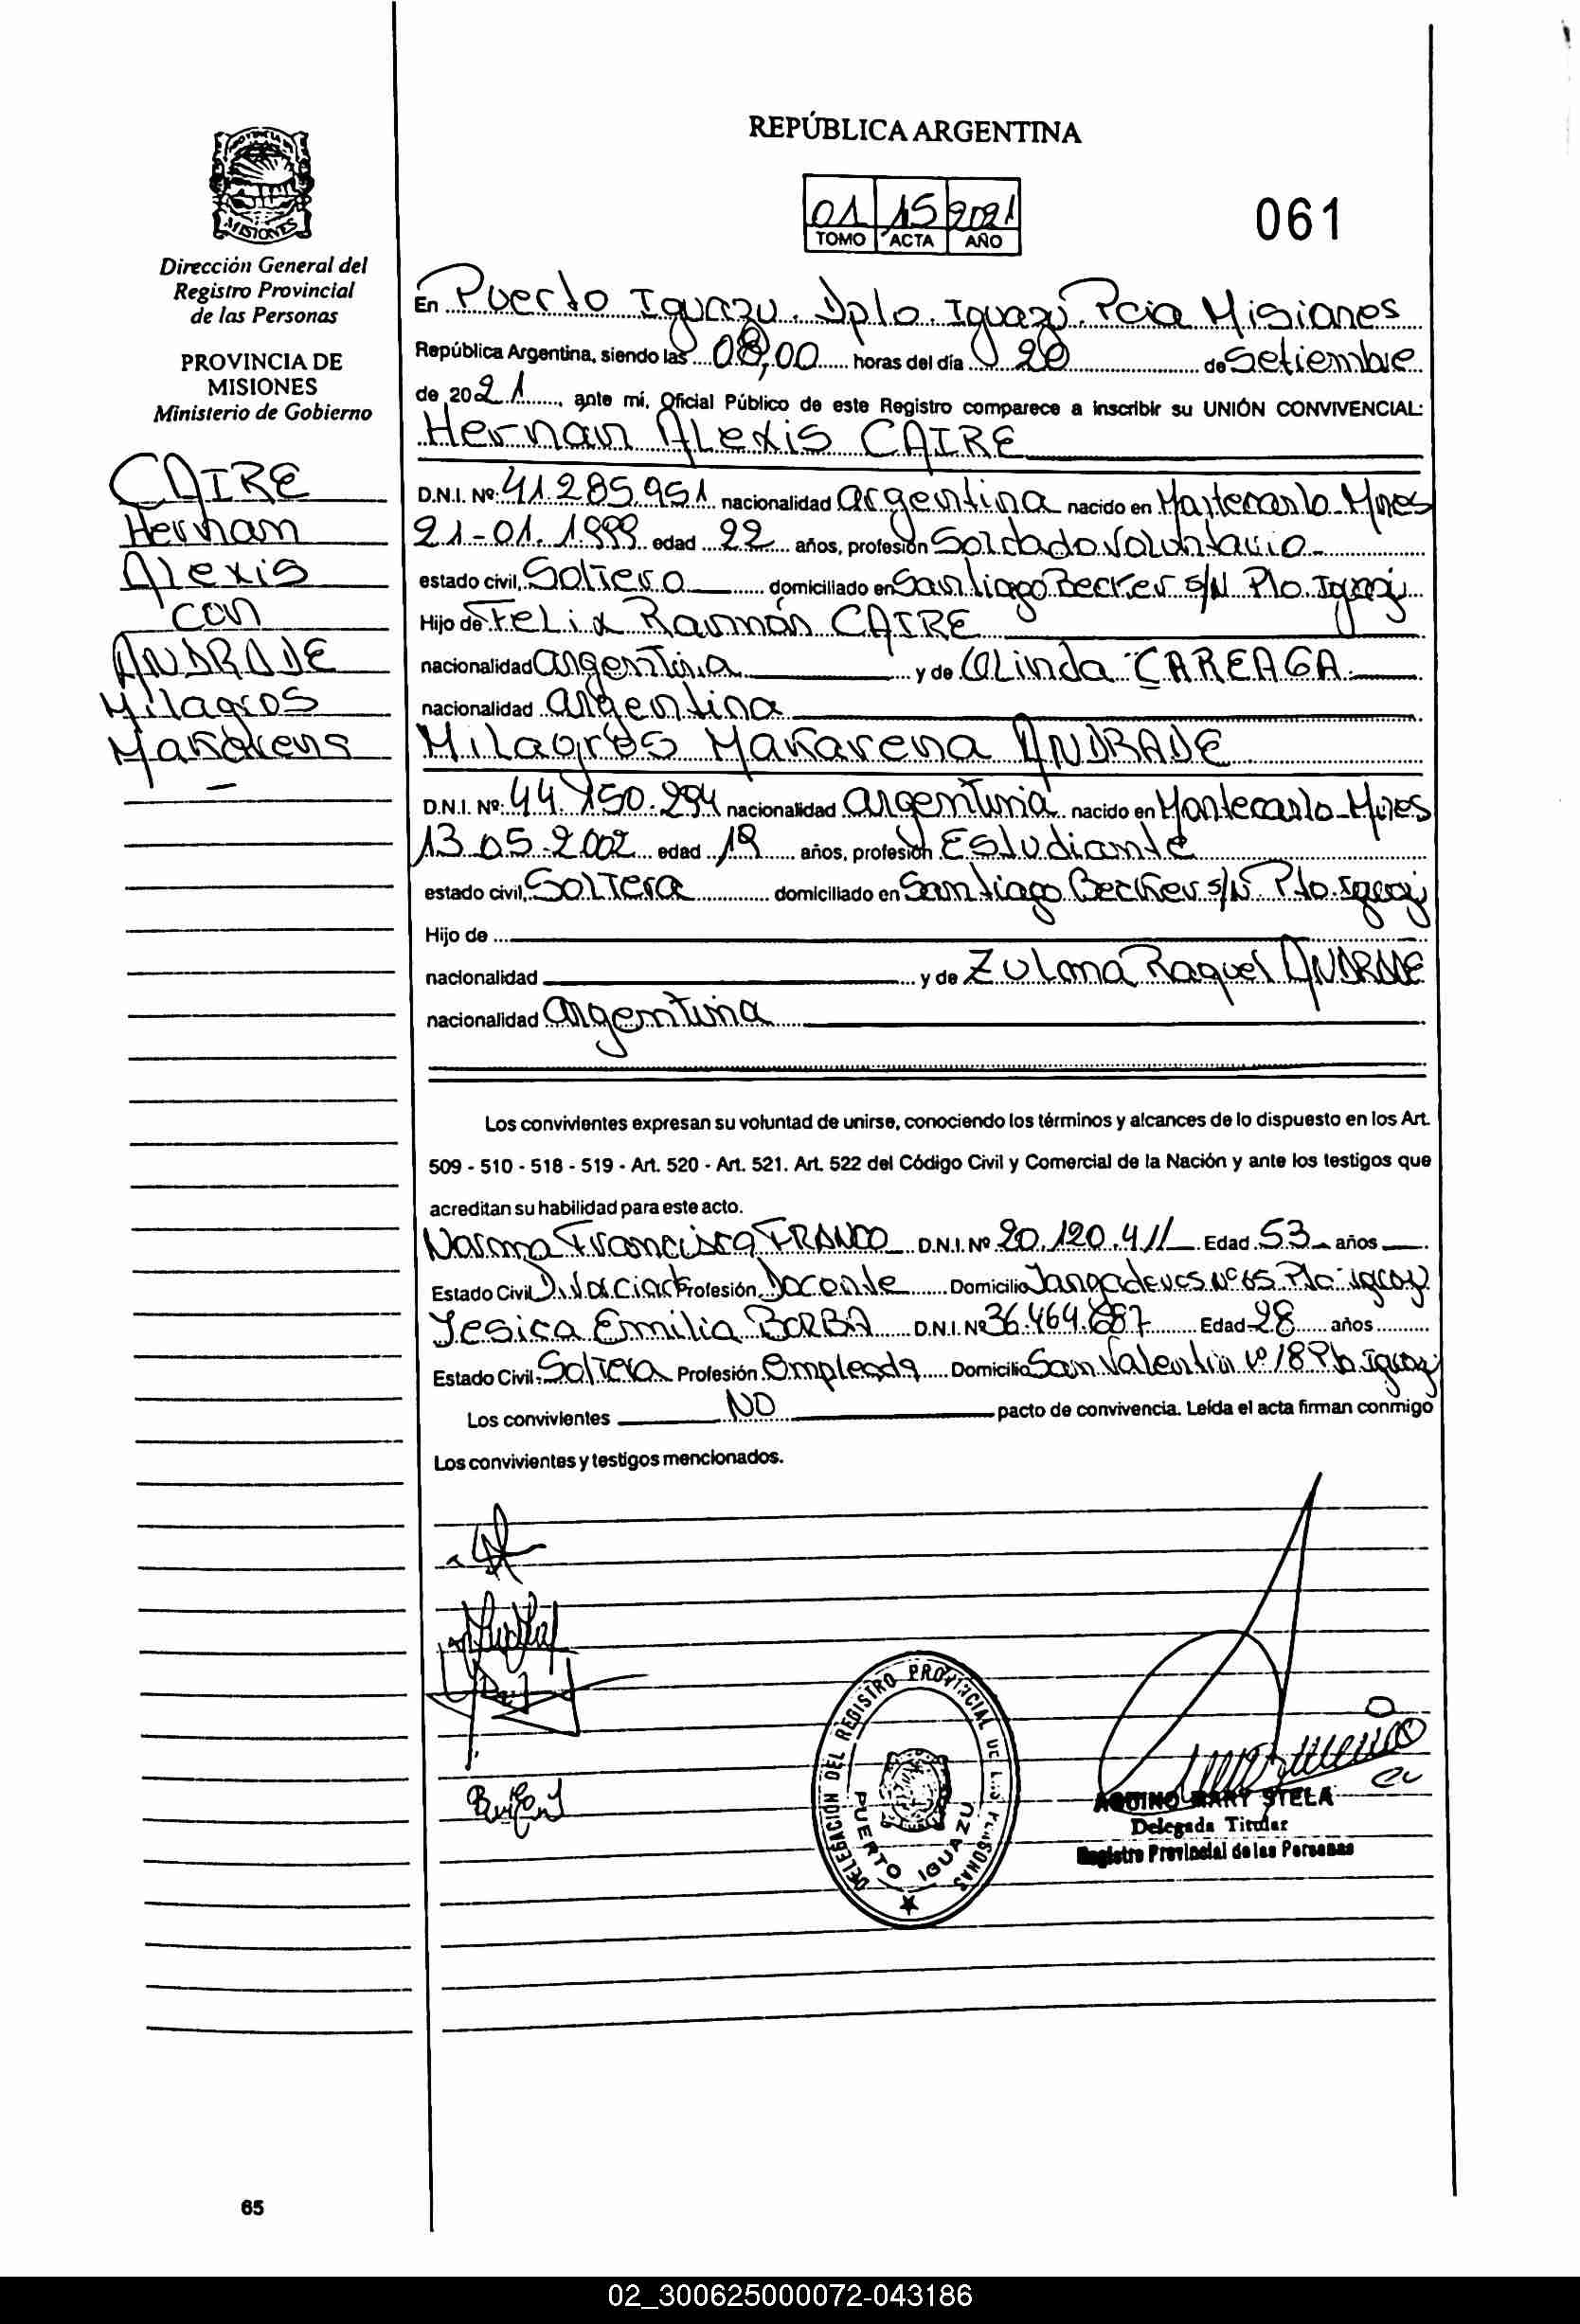 REPÚBLICA ARGENTINA
01 15 2021
TOMO ACTA AÑO
061
MISIONES
Dirección General del
Registro Provincial
de las Personas
PROVINCIA DE
MISIONES
Ministerio de Gobierno
CAIRE
Hernan
Alexis
con
ANDRADE
Milagros
Makarena
En Puerto Iguazu. Dpto. Iguazú. Pcia Misiones
República Argentina, siendo las 08,00 horas del día 20 de Setiembre
de 2021, ante mí, Oficial Público de este Registro comparece a inscribir su UNIÓN CONVIVENCIAL:
Hernan Alexis CAIRE
D.N.I. Nº: 41.285.951 nacionalidad argentina nacido en Montecarlo-Mnes
21-01.1.999 edad 22 años, profesión Soldado Voluntario
estado civil, Soltero domiciliado en Santiago Becker s/N Pto. Iguazú
Hijo de Felix Ramón CAIRE
nacionalidad argentina y de Olinda CAREAGA
nacionalidad argentina
Milagros Makarena ANDRADE
D.N.I. Nº: 44.150.294 nacionalidad argentina nacido en Montecarlo-Mnes
13.05.2002 edad 19 años, profesión Estudiante
estado civil, Soltera domiciliado en Santiago Becker s/N Pto. Iguazú
Hijo de
nacionalidad y de Zulma Raquel ANDRADE
nacionalidad argentina
Los convivientes expresan su voluntad de unirse, conociendo los términos y alcances de lo dispuesto en los Art.
509 - 510 - 518 - 519 - Art. 520 - Art. 521. Art. 522 del Código Civil y Comercial de la Nación y ante los testigos que
acreditan su habilidad para este acto.
Norma Francisca FRANCO D.N.I. Nº 20.120.411 Edad 53 años
Estado Civil Divorciada Profesión Docente Domicilio Jangaderos Nº 65 Pto Iguazú
Yesica Emilia BORBA D.N.I. Nº 36.464.687 Edad 28 años
Estado Civil: Soltera Profesión Empleada Domicilio San Valentin Nº 18 Pto Iguazú
Los convivientes NO pacto de convivencia. Leída el acta firman conmigo
Los convivientes y testigos mencionados.
DELEGACIÓN DEL REGISTRO PROVINCIAL DE LAS PERSONAS
PUERTO IGUAZU
AQUINO MARY STELA
Delegada Titular
Registro Provincial de las Personas
65
02_300625000072-043186